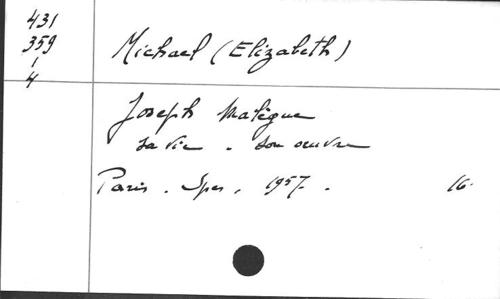 431
359
1
4
Michael (Elizabeth)
Joseph Malègue
sa vie . son oeuvre
Paris . Spes . 1957 .
16.